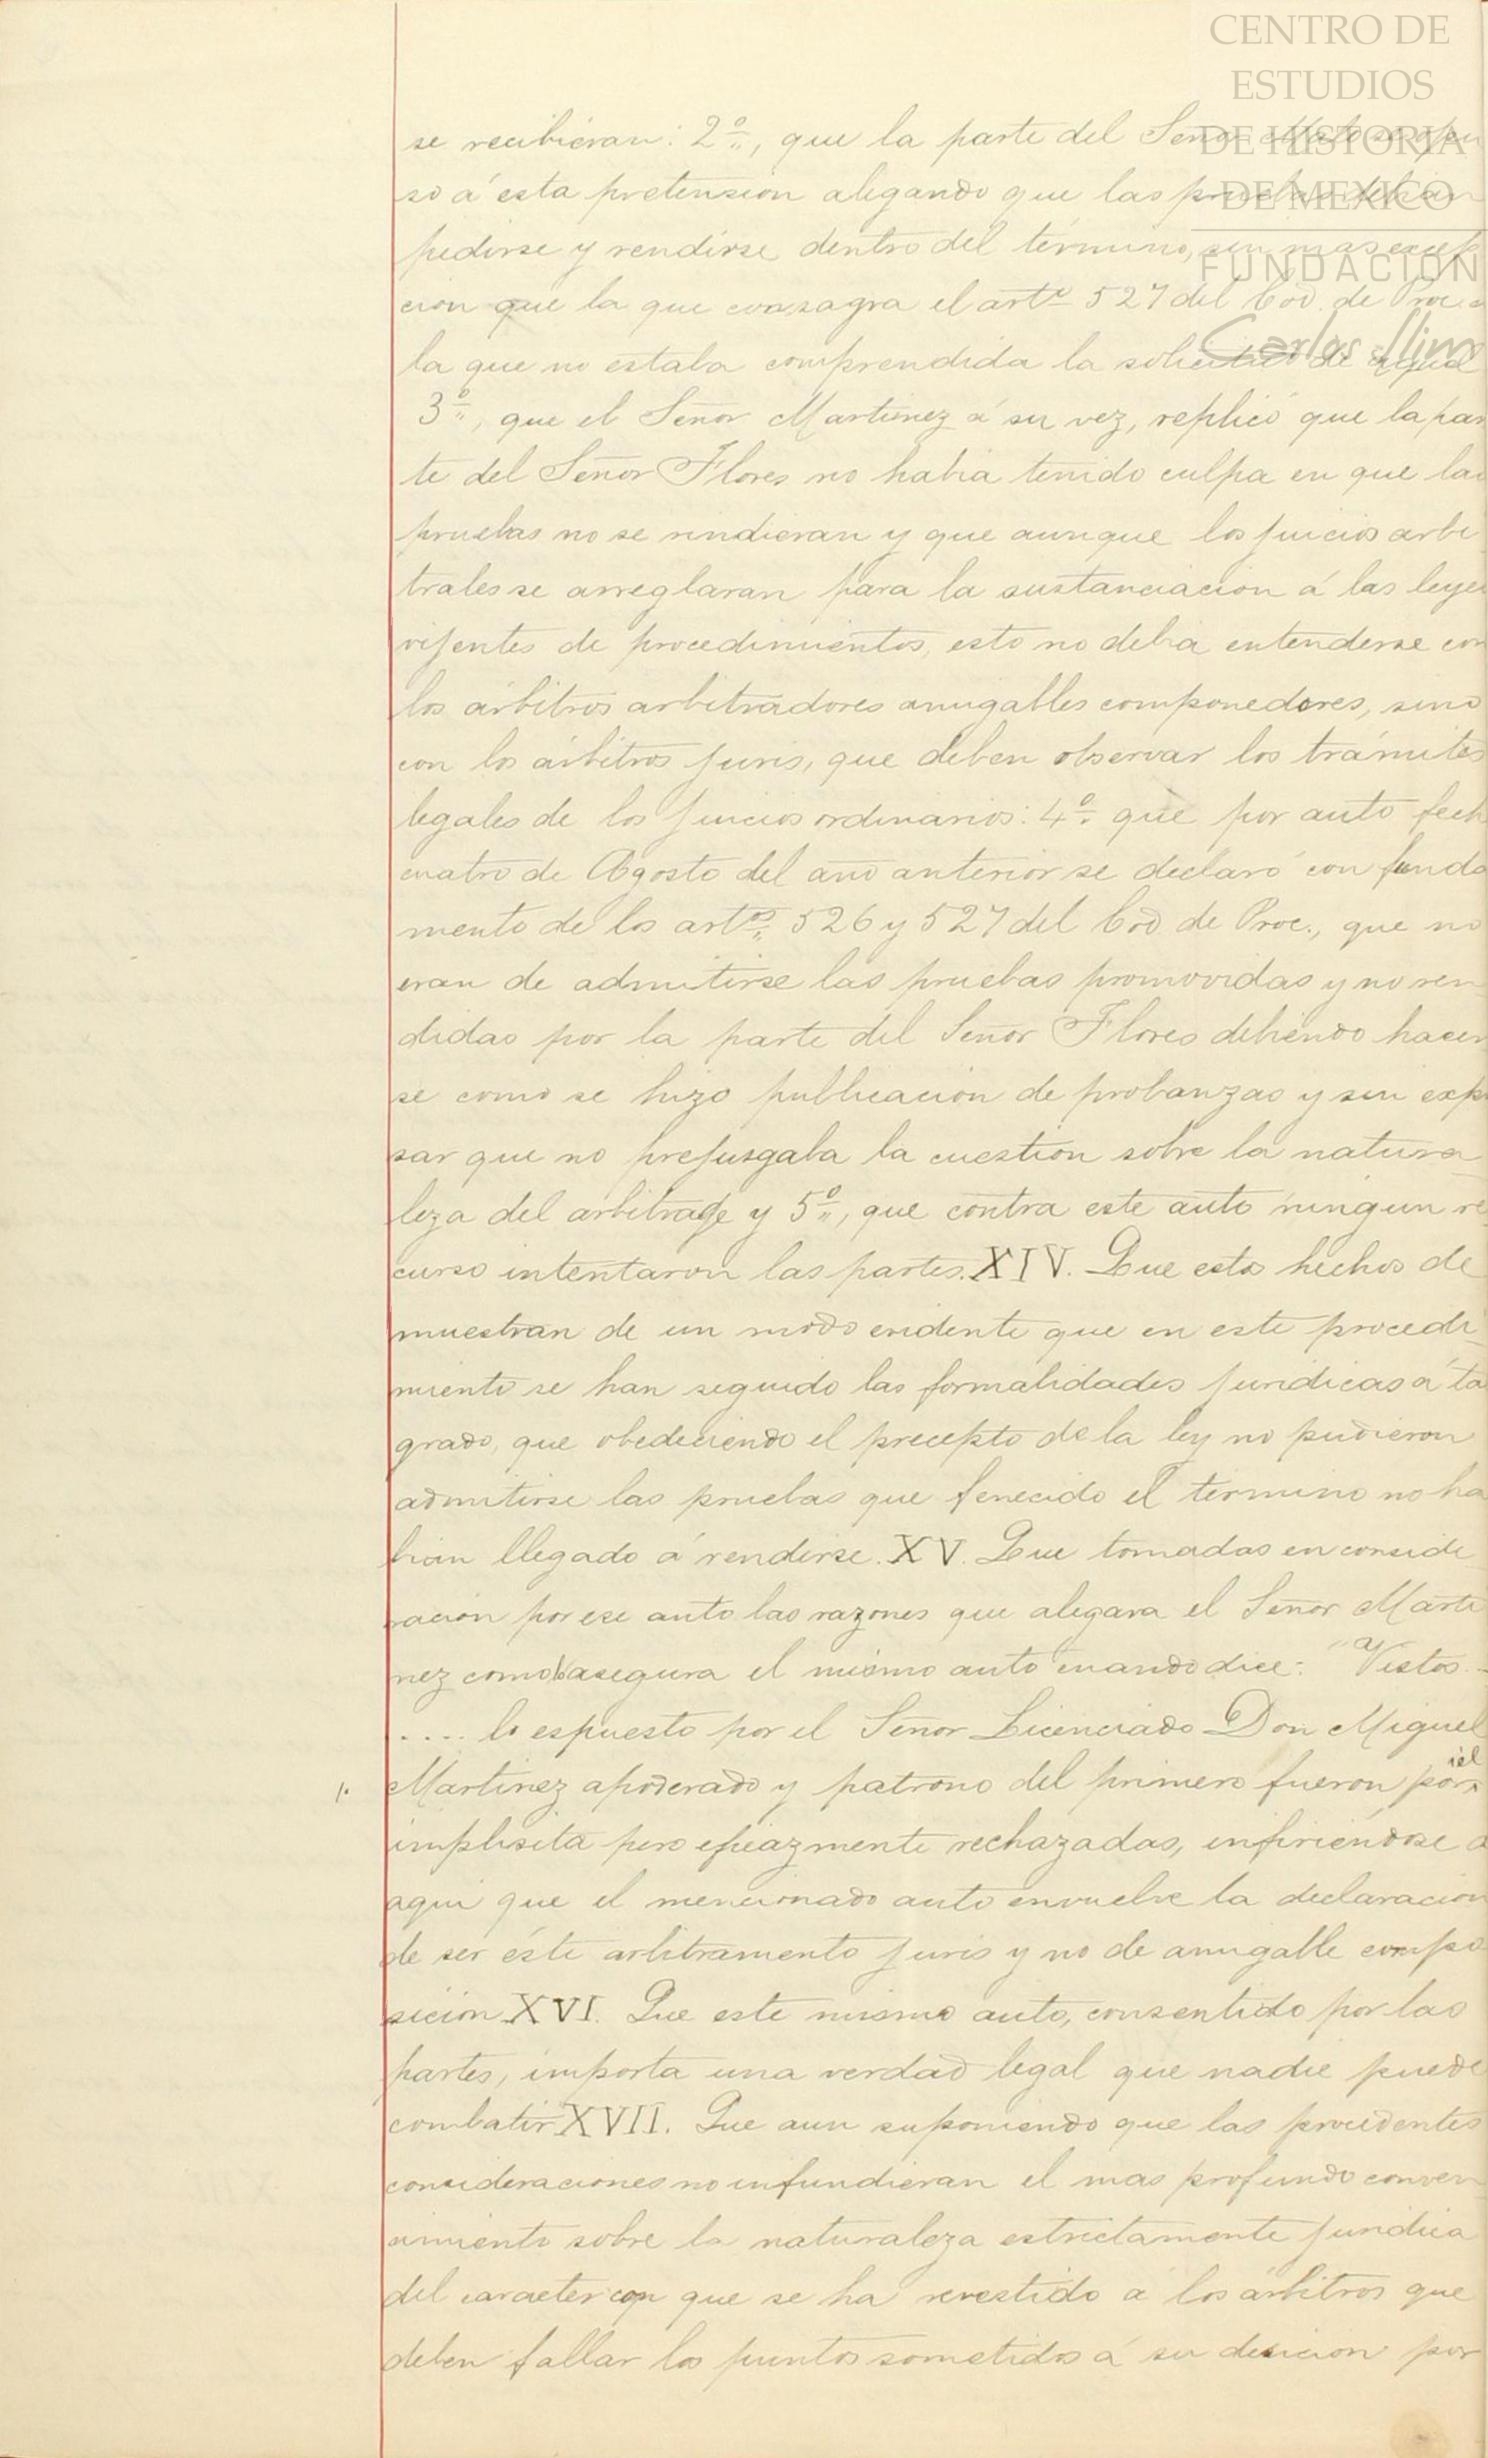 CENTRO DE
ESTUDIOS
DE HISTORIA
DE MEXICO
FUNDACIÓN
Carlos Slim
se recibieran: 2º, que la parte del Señor se opu
so á esta pretension alegando que las pruebas debian
pedirse y rendirse dentro del término, sin mas excep
cion que la que consagra el artº 527 del Cod. de Proc. á
la que no estaba comprendida la solicitud de aquel
3º, que el Señor Martinez á su vez, replicó que la par
te del Señor Flores no habia tenido culpa en que las
pruebas no se rindieran y que aunque los juicios arbi
trales se arreglaran para la sustanciacion á las leyes
vijentes de procedimientos, esto no debia entenderse con
los árbitros arbitradores amigables componedores, sino
con los árbitros juris, que deben observar los trámites
legales de los juicios ordinarios: 4º que por auto fech
cuatro de Agosto del año anterior se declaró con funda
mento de los artos 526 y 527 del Cod de Proc., que no
eran de admitirse las pruebas promovidas y no ren
didas por la parte del Señor Flores debiendo hacer
se como se hizo publicacion de probanzas y sin exp
sar que no prejusgaba la cuestion sobre la natura
leza del arbitrage y 5º, que contra este auto ningun re
curso intentaron las partes. XIV. Que estos hechos de
muestran de un modo evidente que en este procedi
miento se han seguido las formalidades juridicas á ta
grado, que obedeciendo el precepto de la ley no pudieron
admitirse las pruebas que fenecido el término no ha
bian llegado á rendirse. XV. Que tomadas en conside
racion por ese auto las razones que alegara el Señor Marti
nez como asegura el mismo auto cuando dice: "Vistos
.... lo espuesto por el Señor Licenciado Don Miguel
Martinez apoderado y patrono del primero fueron por
iel
implisita pero eficazmente rechazadas, infiriéndose d
aqui que el mencionado auto envuelve la declaracion
de ser éste arbitramento juris y no de amigable compo
sicion XVI. Que este mismo auto, consentido por las
partes, importa una verdad legal que nadie puede
combatir XVII. Que aun suponiendo que las precedentes
consideraciones no infundieran el mas profundo conven
cimiento sobre la naturaleza estrictamente juridica
del caracter con que se ha revestido á los árbitros que
deben fallar los puntos sometidos á su desicion por